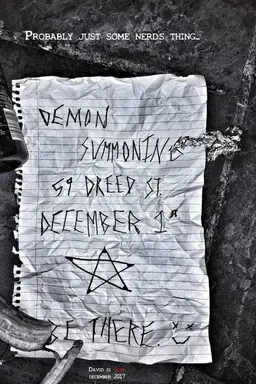 Probably just some nerds thing...
DEMON
SUMMONING
59 DREED ST.
DECEMBER 1st
BE THERE.
David is Gone
december 2017